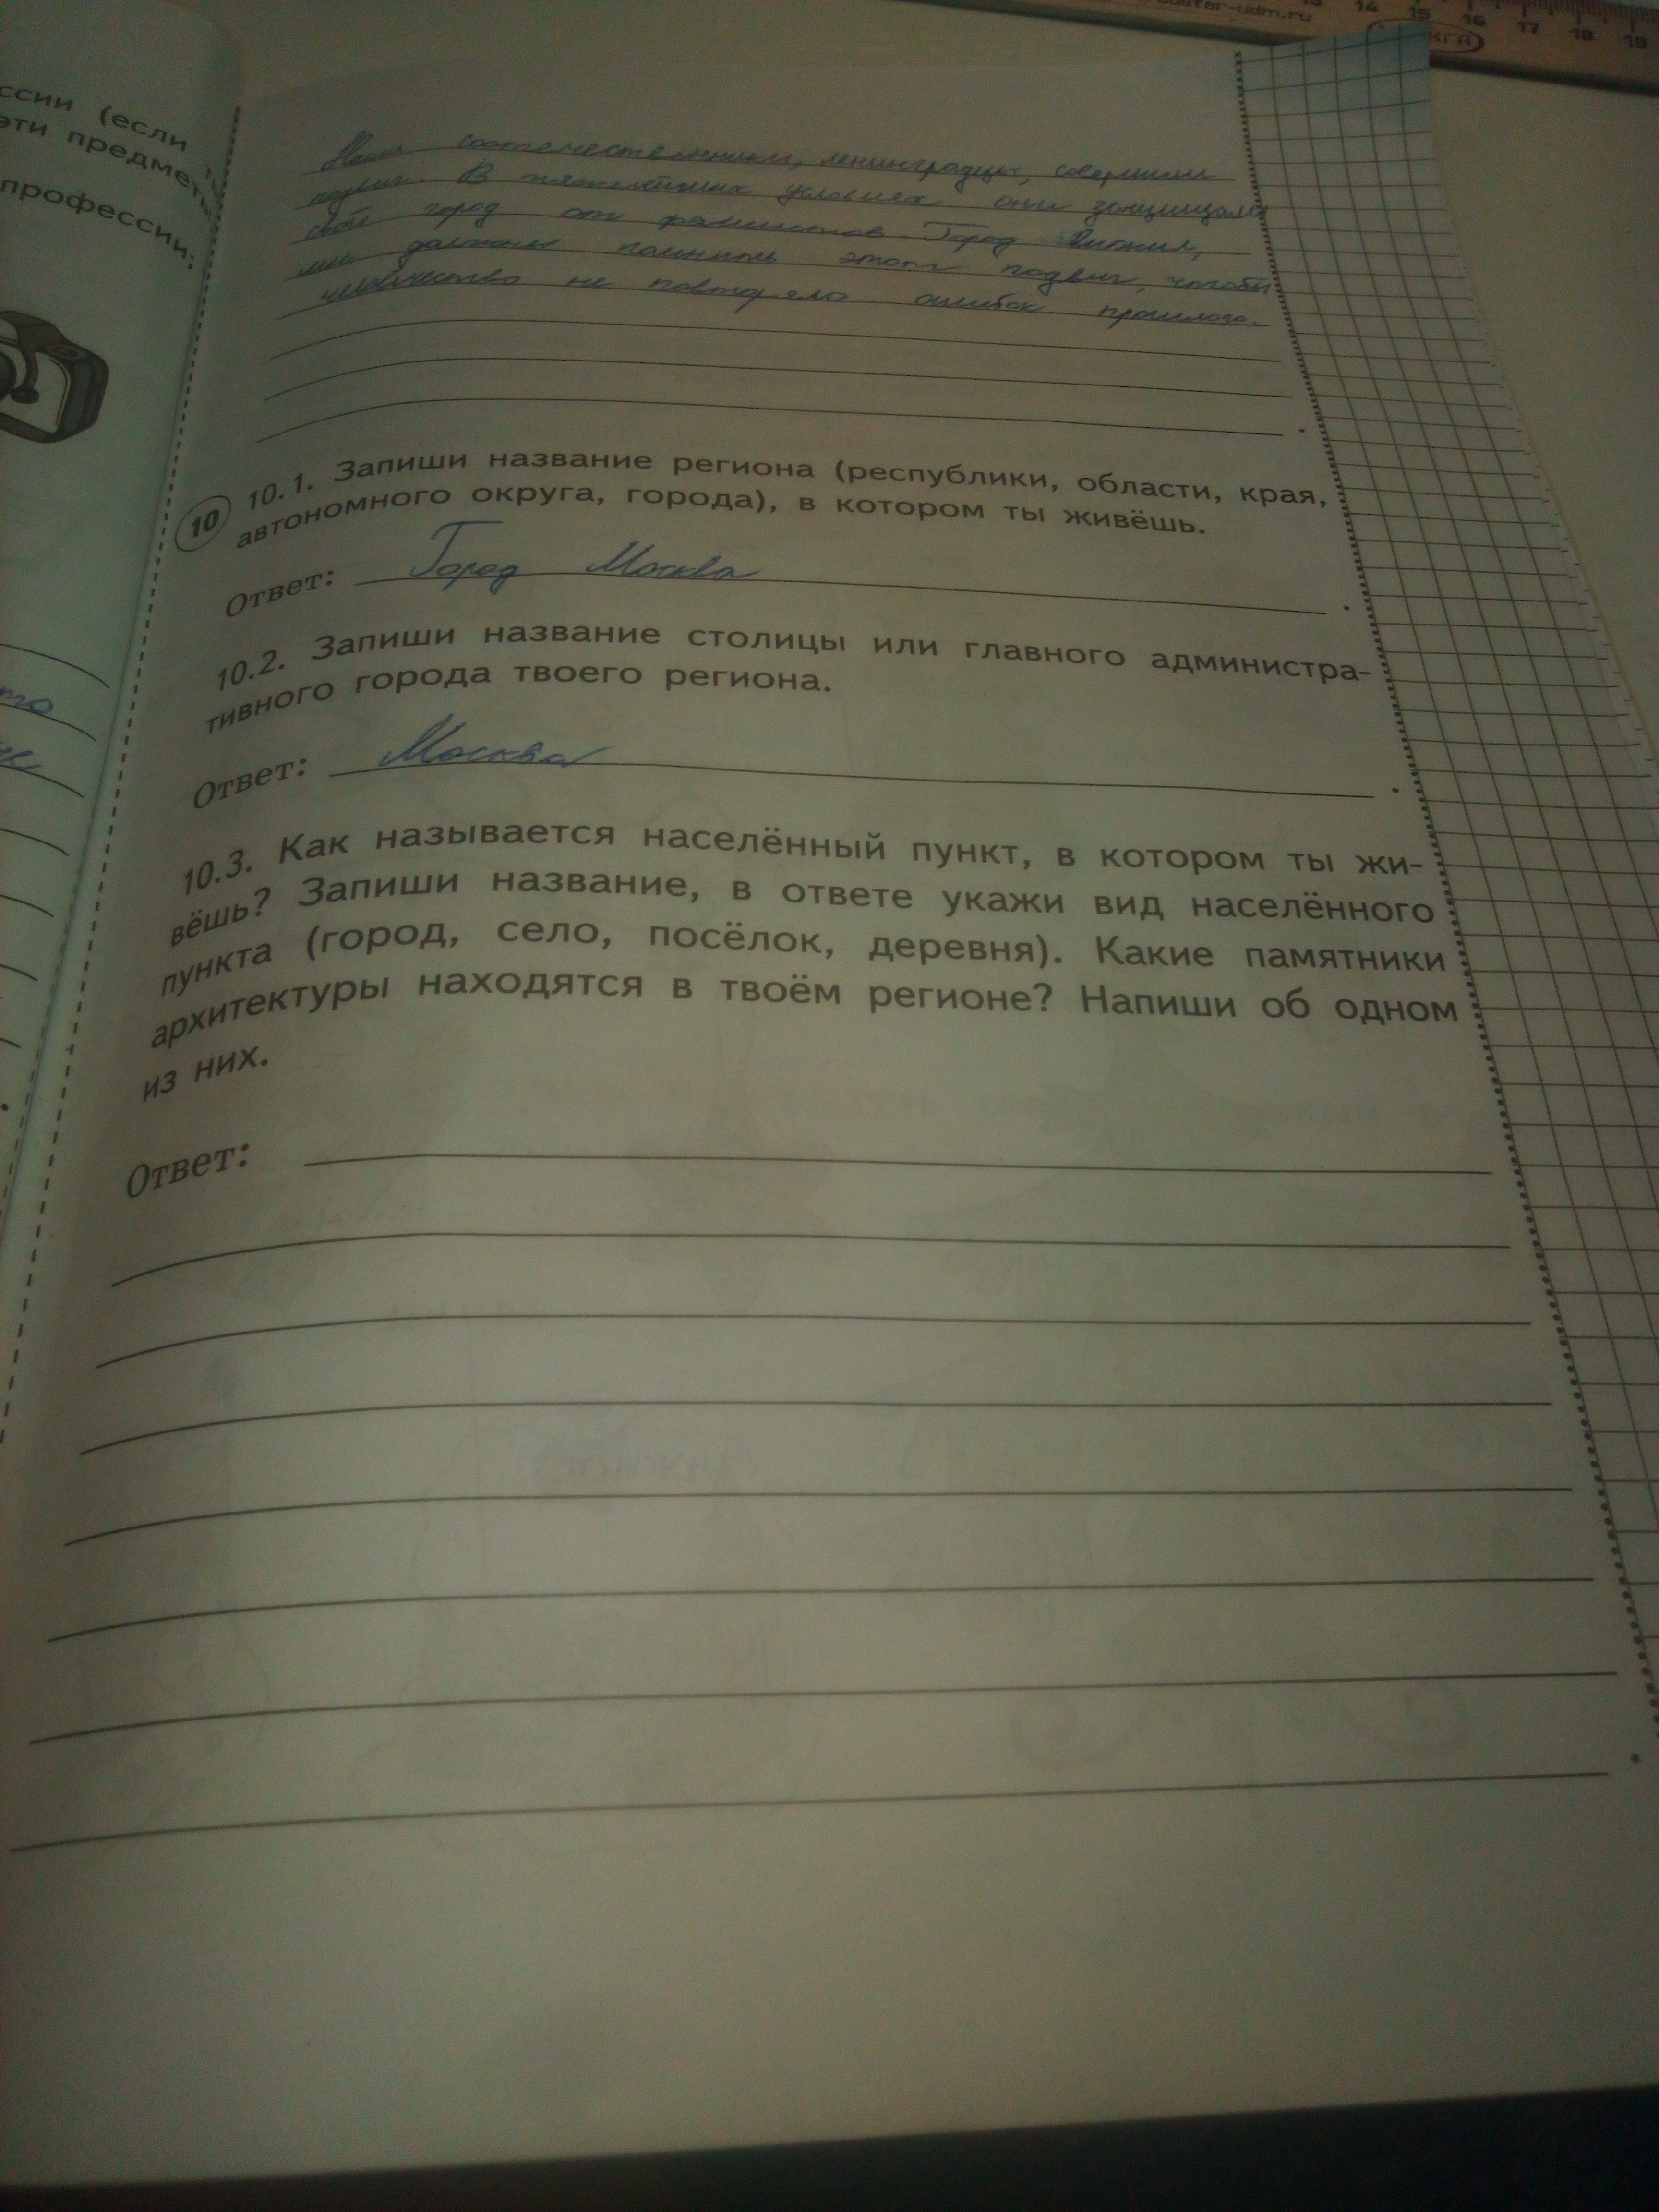 ustar-udm.ru
14 15 16 17 18 19
ссии (если
эти предметы
профессии:
Наши соотечественники, ленинградцы, совершили
подвиг. В тяжелейших условиях они защищали
свой город от фашистов. Город выжил,
мы должны помнить этот подвиг, чтобы
человечество не повторяло ошибок прошлого.
10 10.1. Запиши название региона (республики, области, края,
автономного округа, города), в котором ты живёшь.
Ответ: Город Москва .
10.2. Запиши название столицы или главного администра-
тивного города твоего региона.
Ответ: Москва .
10.3. Как называется населённый пункт, в котором ты жи-
вёшь? Запиши название, в ответе укажи вид населённого
пункта (город, село, посёлок, деревня). Какие памятники
архитектуры находятся в твоём регионе? Напиши об одном
из них.
Ответ: